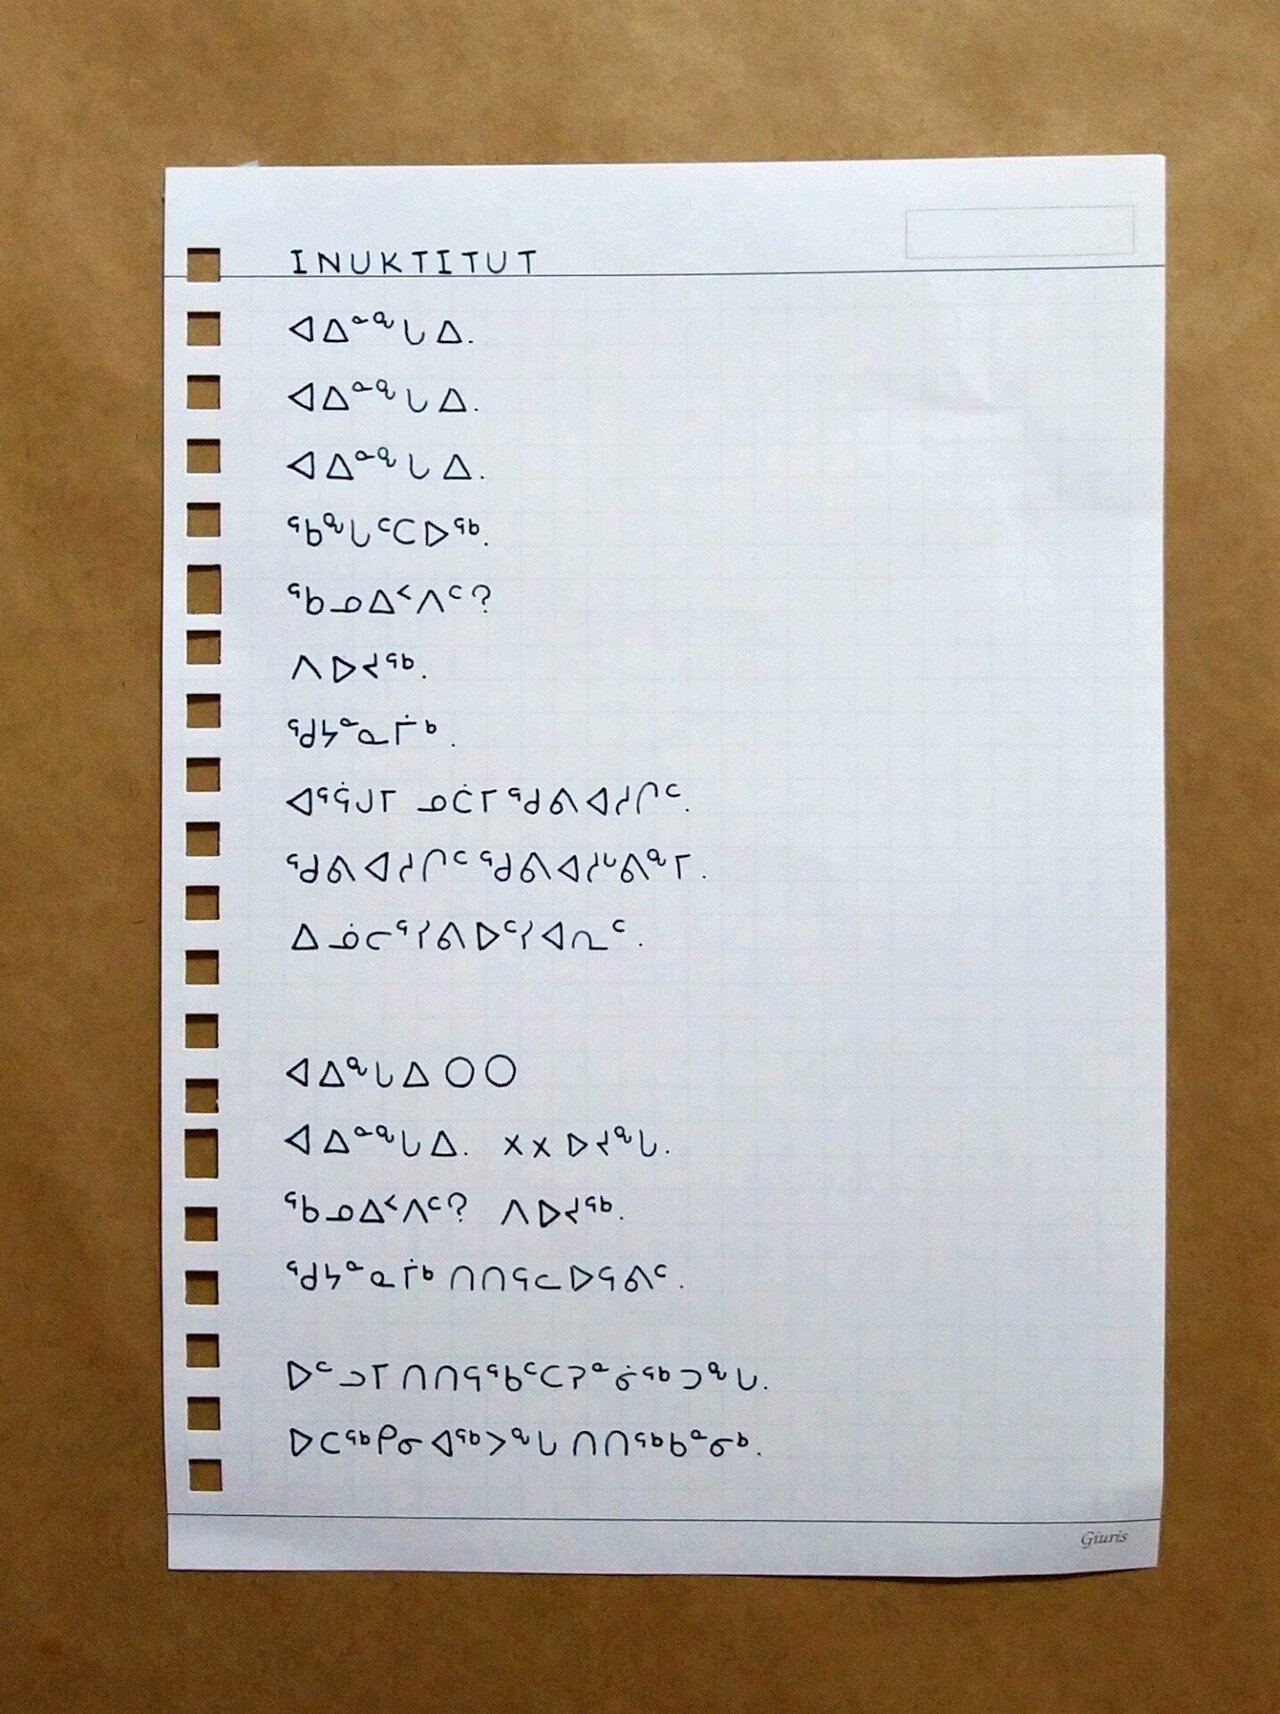 INUKTITUT
ᐊᐃᓐᖓᐃ.
ᐊᐃᓐᖓᐃ.
ᐊᐃᓐᖓᐃ.
ᖃᖓᑦᑕᐅᖅ.
ᖃᓄᐃᑉᐱᑦ?
ᐱᐅᔪᖅ.
ᖁᔭᓐᓇᒦᒃ.
ᐊᕐᕌᒍᒥ ᓄᑖᒥ ᖁᕕᐊᓱᒋᑦ.
ᖁᕕᐊᓱᒋᑦ ᖁᕕᐊᓱᒡᕕᖕᒥ.
ᐃᓅᓕᕐᓯᕕᐅᑦᓯᐊᕆᑦ.
ᐊᐃᖓᐃ OO
ᐊᐃᓐᖓᐃ. xx ᐅᔪᖓ.
ᖃᓄᐃᑉᐱᑦ? ᐱᐅᔪᖅ.
ᖁᔭᓐᓇᒦᒃ ᑎᑎᕋᓚᐅᕋᕕᑦ.
ᐅᑦᑐᒥ ᑎᑎᕋᖃᑦᑕᕈᓐᓃᖅᑐᖓ.
ᐅᑕᖅᑭᓂᐊᖅᐳᖓ ᑎᑎᖅᑲᓐᓂᒃ.
Giuris